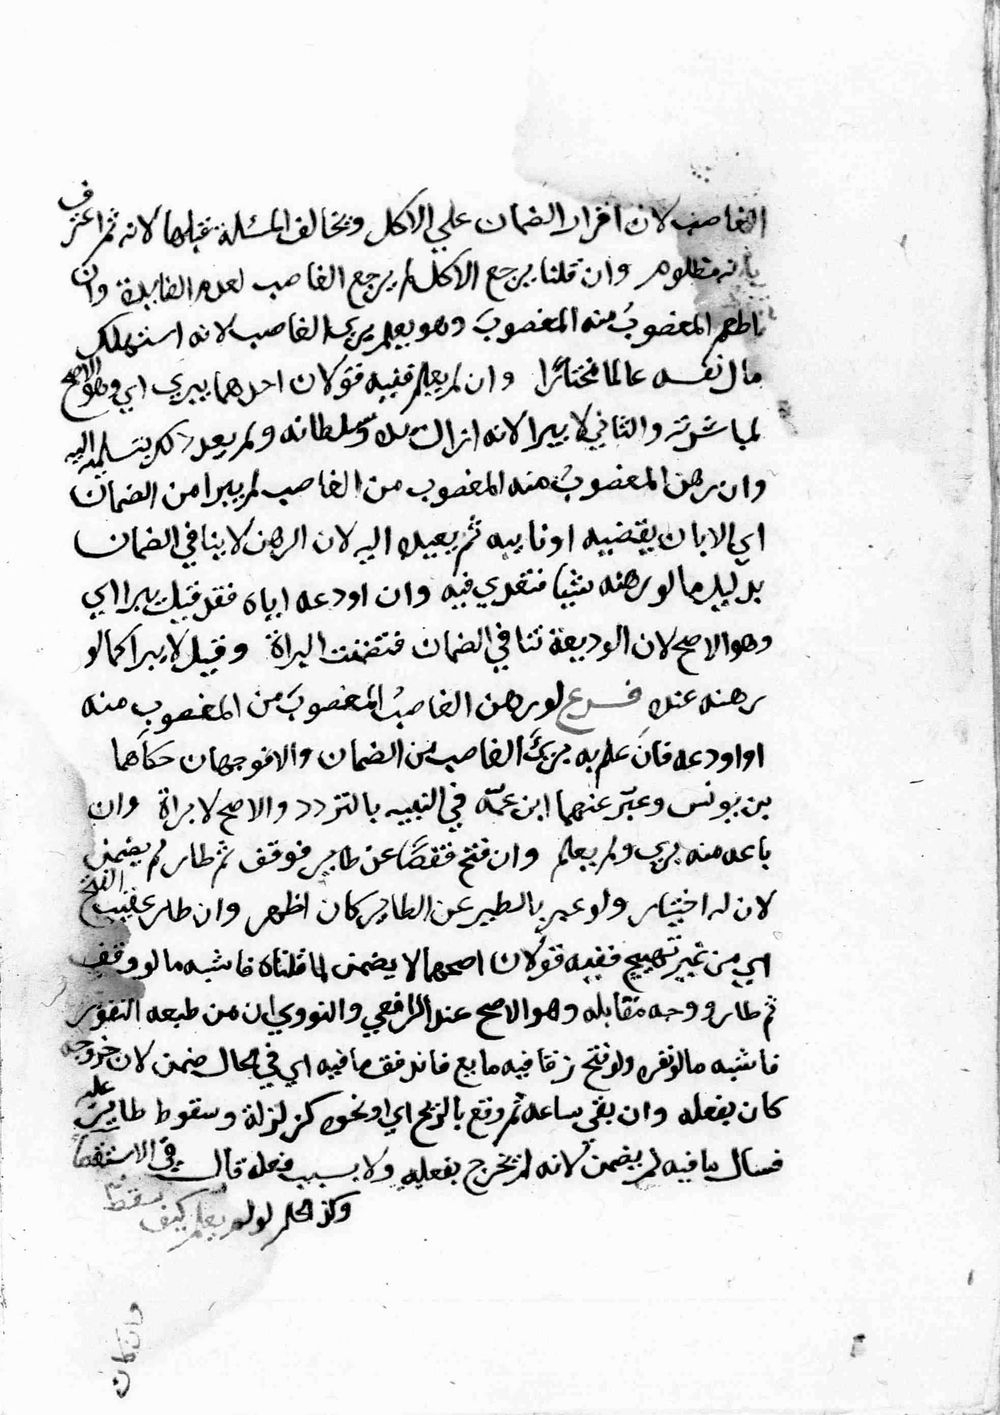 الغاصب لان اقرار الضمان علي الاكل ويخالف المسئلة قبلها لانه ثم اعترف
بانه مظلوم وان قلنا يرجع الاكل لم يرجع الغاصب لعدم الفايدة وان
اطعم المغصوبُ منه المغصوبَ وهو يعلم بري الغاصب لانه استهلك
مال نفسه عالما مختارًا وان لم يعلم ففيه قولان احدهما يبري اي وهو الاصح
لمباشرته والثاني لا يبرا لانه ازال يده وسلطانه ولم يعد ذلك بتسليمه اليه
وان رهن المغصوبُ منه المغصوب من الغاصب لم يبرا من الضمان
اي الا بان يقبضه او نايبه ثم يعيده اليه لان الرهن لا ينافي الضمان
بدليل ما لو رهنه شيا فتعدي فيه وان اودعه اياه فقد قيل يبرا اي
وهو الاصح لان الوديعة تنافي الضمان فتضمنت البراة وقيل لا يبرا كما لو
رهنه عنده فرع لو رهن الغاصبُ المغصوبَ من المغصوب منه
او اودعه فان علم به بري الغاصب من الضمان والا فوجهان حكاهما
بن يونس وعبّر عنهما ابن عمّه في التنبيه بالتردد والاصح لا براة وان
باعه منه بري ولم يعلم وان فتح قفصًا عن طاير فوقف ثم طار لم يضمن
لان له اختيار ولو عبر بالطير عن الطاير كان اظهر وان طار عقيب الفتح
اي من غير تهييج ففيه قولان اصحهما لا يضمن لما قلناه فاشبه ما لو وقف
ثم طار ووجه مقابله وهو الاصح عند الرافعي والنووي ان من طبعه النفور
فاشبه ما لو نفره ولو فتح زقا فيه مايع فاندفق ما فيه اي في الحال ضمن لان خروجه
كان بفعله وان بقي ساعه ثم وقع بالريح اي او نحوه كزلزلة وسقوط طاير عليه
فسال ما فيه لم يضمن لانه لم يخرج بفعله ولا بسبب فعله قال في الاستقصا
وكذا الحكم لو لم يعلم كيف سقط
وان كان